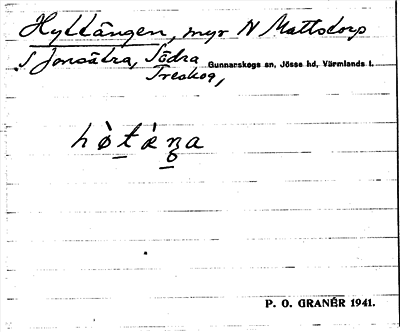 Hyttängen, myr N Mattstorp
S Jonsätra, Södra
Treskog, Gunnarskogs sn, Jösse hd, Värmlands l.
P. O. GRANÉR 1941.